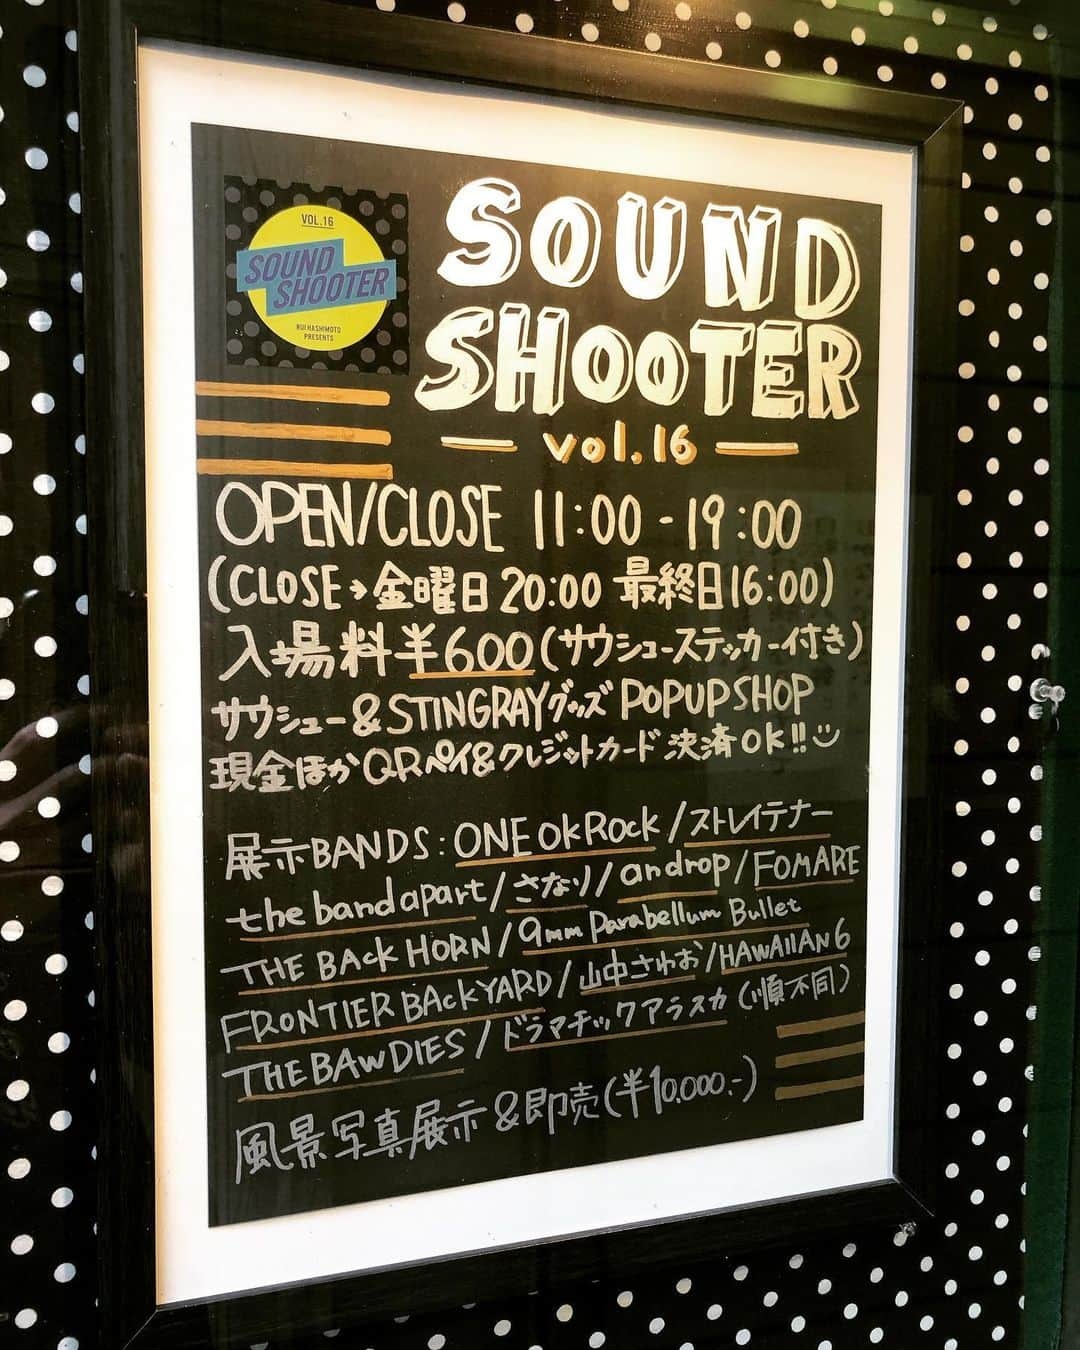 VOL.16
SOUND
SHOOTER
RUI HASHIMOTO
PRESENTS
SOUND
SHOOTER
vol.16
OPEN/CLOSE 11:00 - 19:00
(CLOSE→金曜日20:00 最終日16:00)
入場料¥600(サウシューステッカー付き)
サウシュー&STINGRAYグッズ POPUP SHOP
現金ほかQRペイ&クレジットカード決済OK!!
展示BANDS:ONE OK ROCK/ストレイテナー
the band apart/さなり/androp/FOMARE
THE BACK HORN/9mm Parabellum Bullet
FRONTIER BACKYARD/山中さわお/HAWAIIAN6
THE BAWDIES/ドラマチックアラスカ(順不同)
風景写真展示&即売(¥10,000.-)